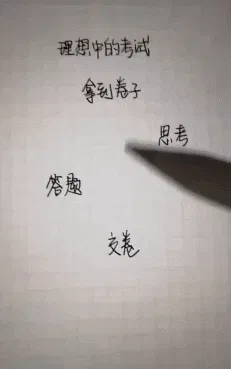 理想中的考试
拿到卷子
思考
答题
交卷